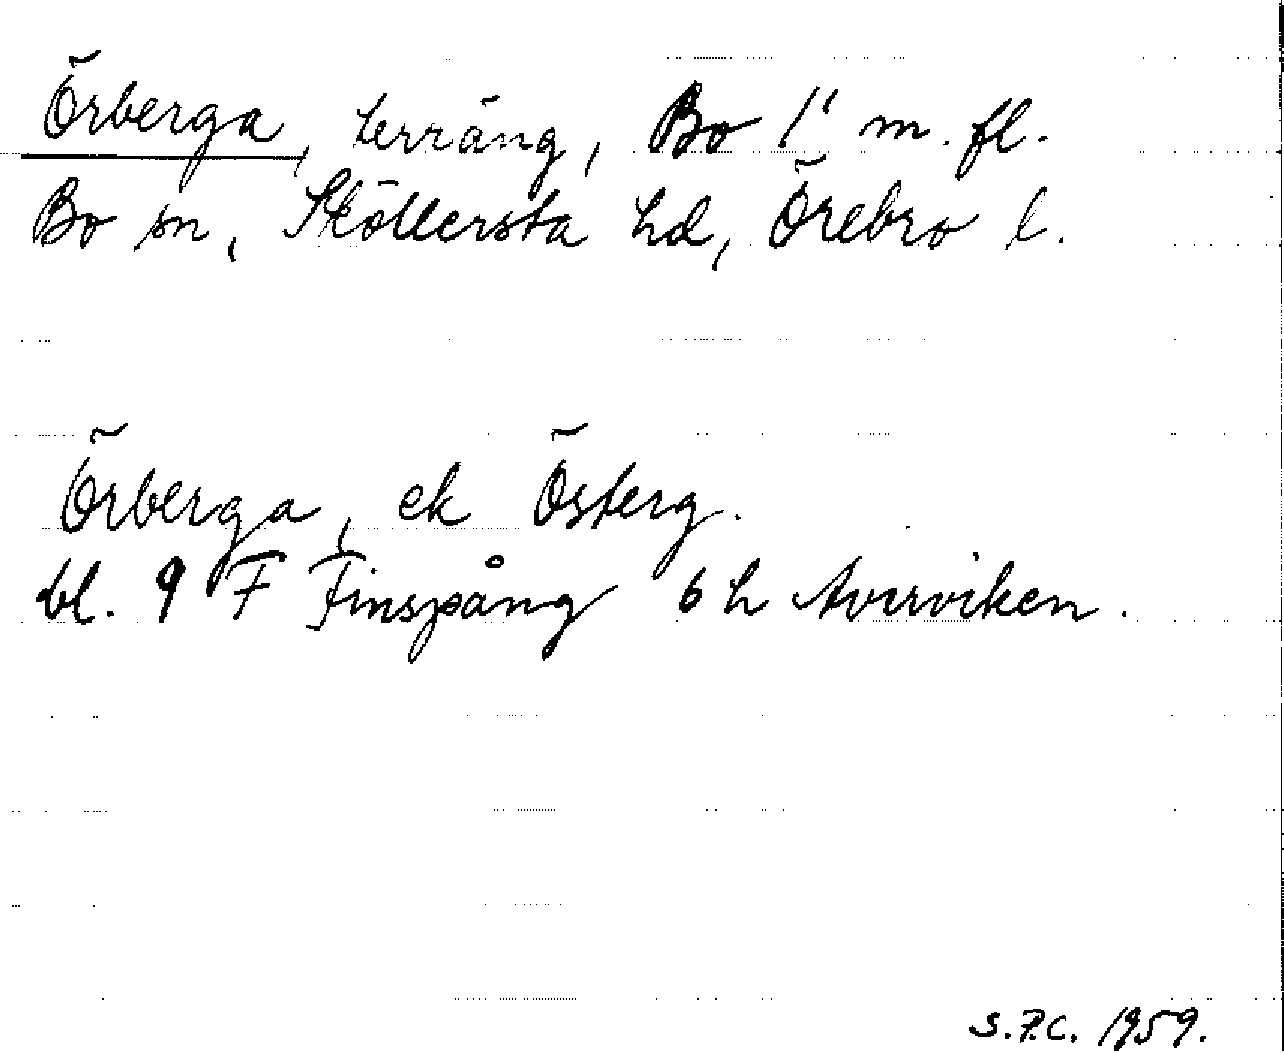 Örberga, terräng, Bo 1¹ m. fl.
Bo sn, Sköllersta hd, Örebro l.
Örberga, ek Österg.
bl. 9 F Finspång 6 h Averviken.
S.P.C. 1959.